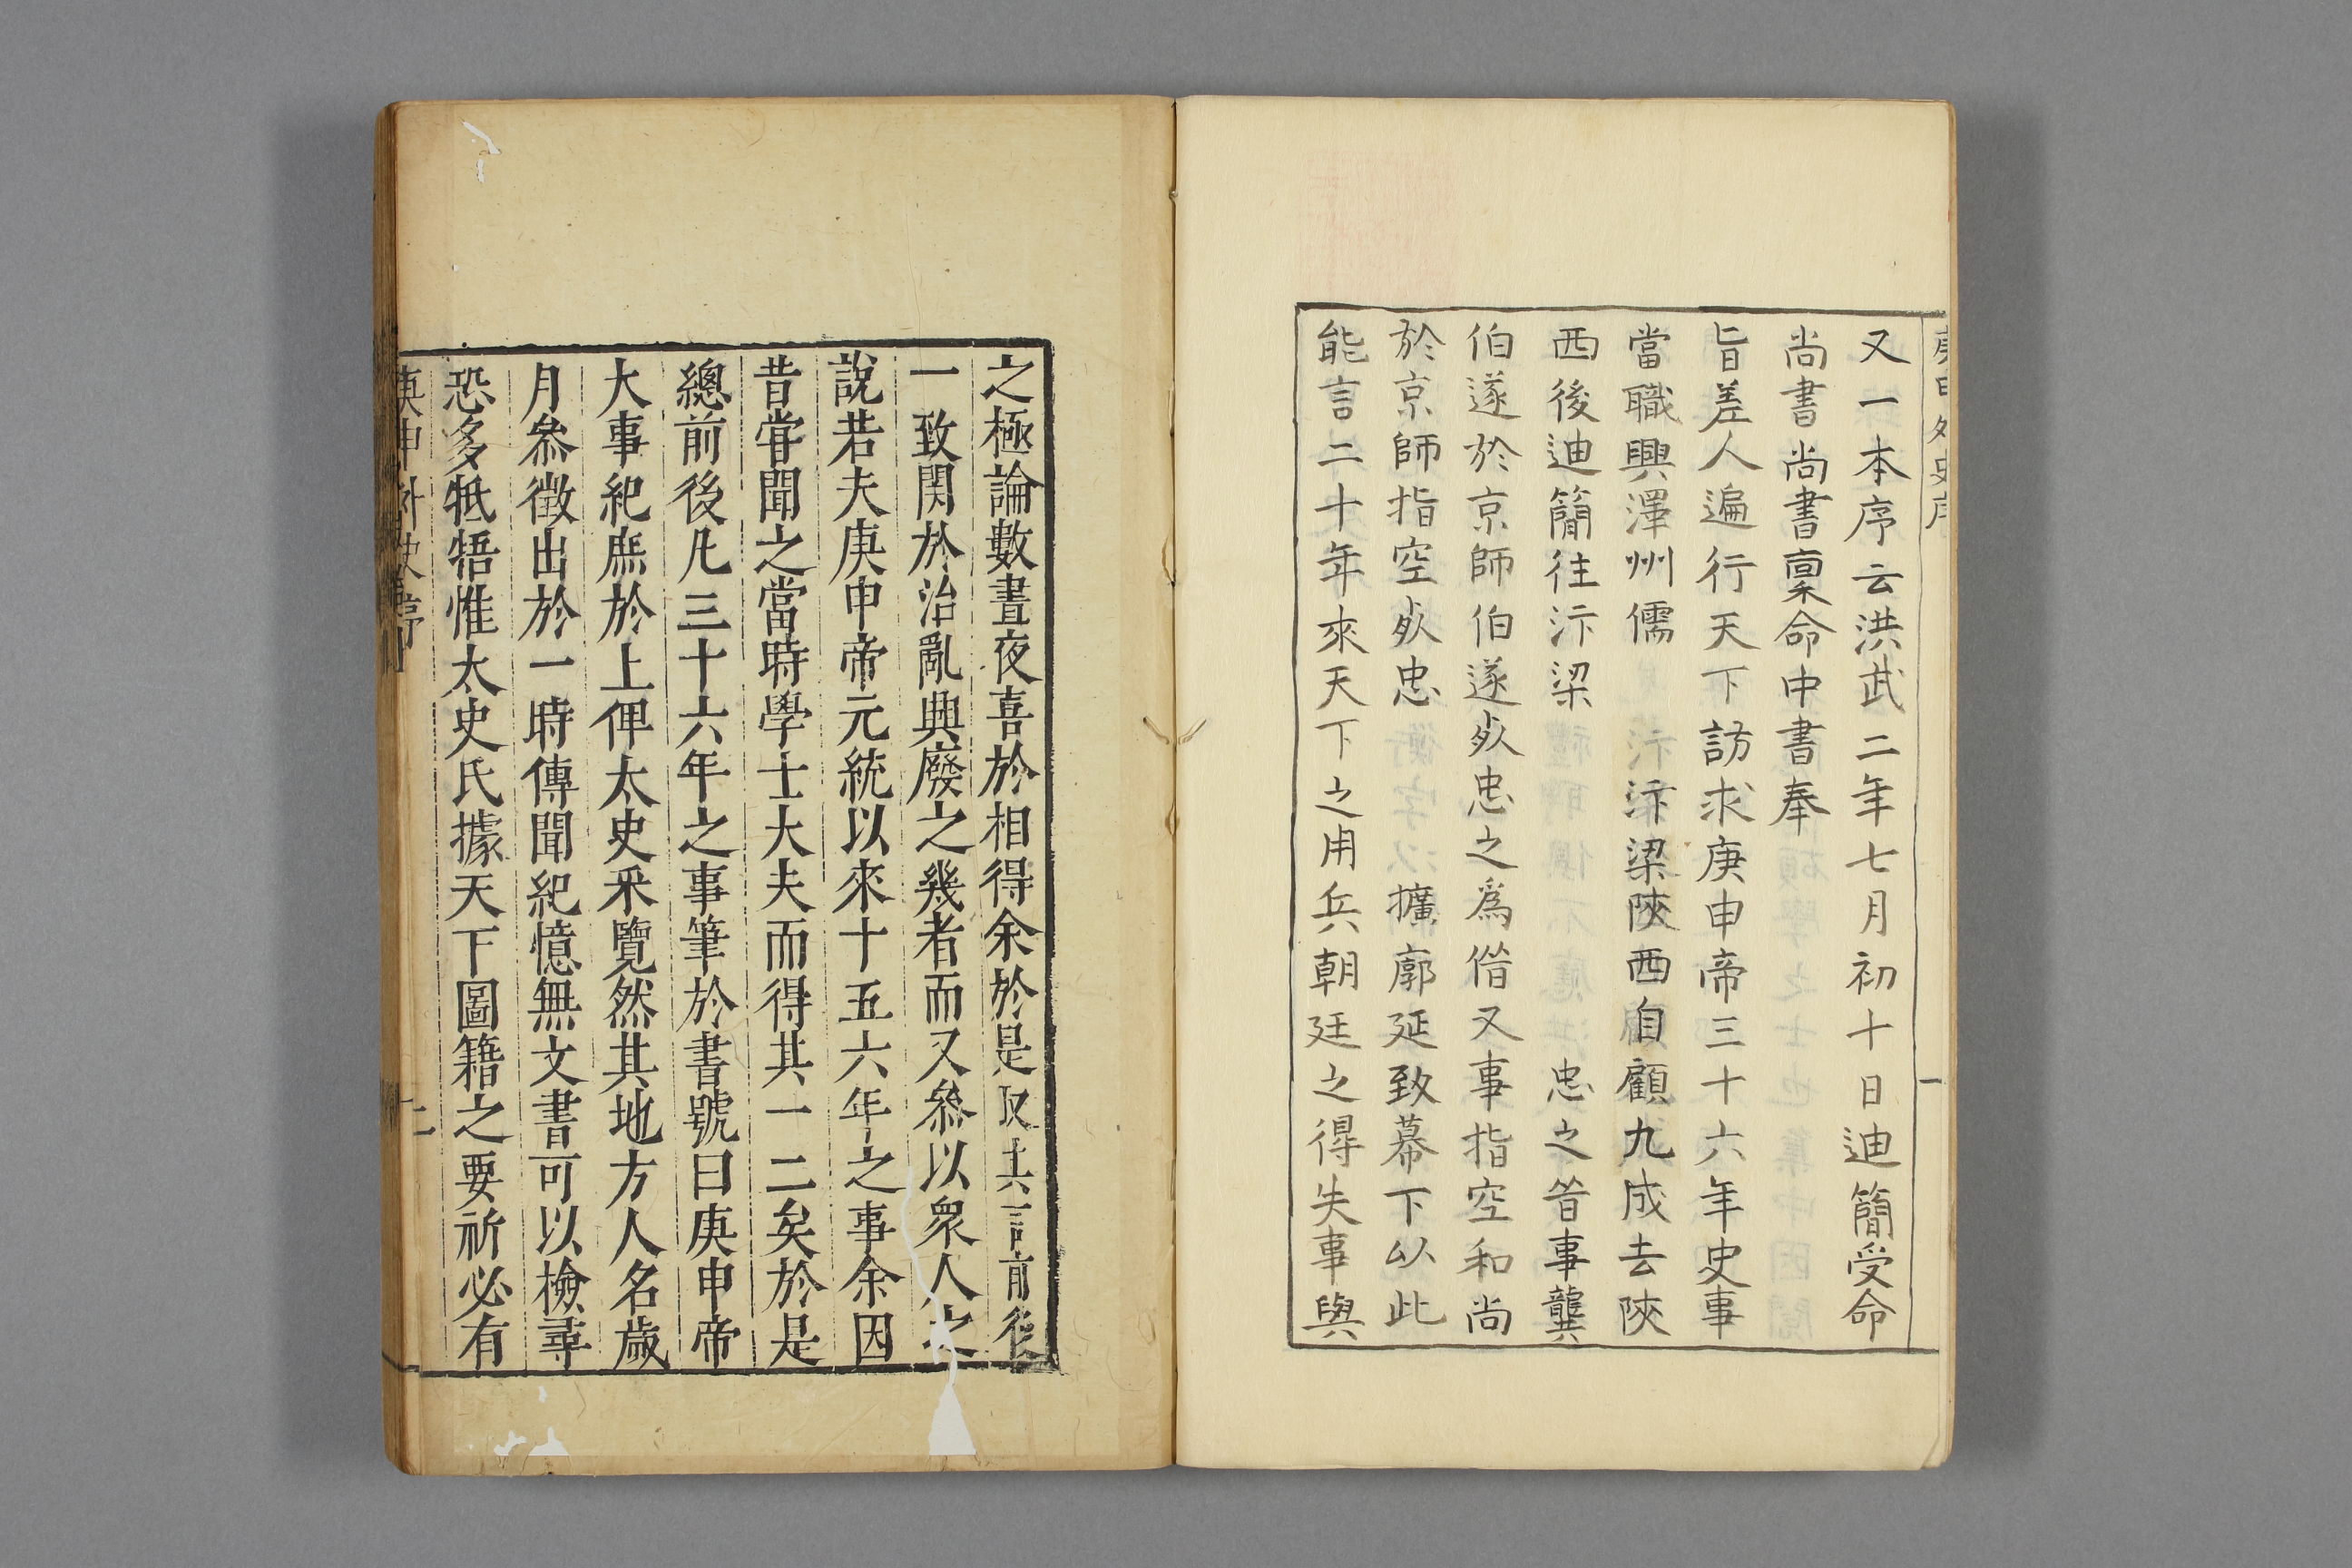 又一本序云洪武二年七月初十日迪簡受命
尚書尚書稟命中書奉
旨差人遍行天下訪求庚申帝三十六年史事
當職興澤州儒 汴梁陝西自顧九成去陝
西後迪簡往汴梁 忠之昔事龔
伯遂於京師伯遂歿忠之爲偺又事指空和尚
於京師指空歿忠 擴廓延致幕下以此
能言二十年來天下之用兵朝廷之得失事與
之極論數晝夜喜於相得余於是取其言前後
一致関於治亂興廢之幾者而又叅以衆人之
說若夫庚申帝元統以來十五六年之事余因
昔甞聞之當時學士大夫而得其一二矣於是
總前後凡三十六年之事筆於書號曰庚申帝
大事紀庶於上俾太史采覽然其地方人名歲
月叅徵出於一時傳聞紀憶無文書可以檢尋
恐多牴牾惟太史氏據天下圖籍之要祈必有
庚申外史序
二